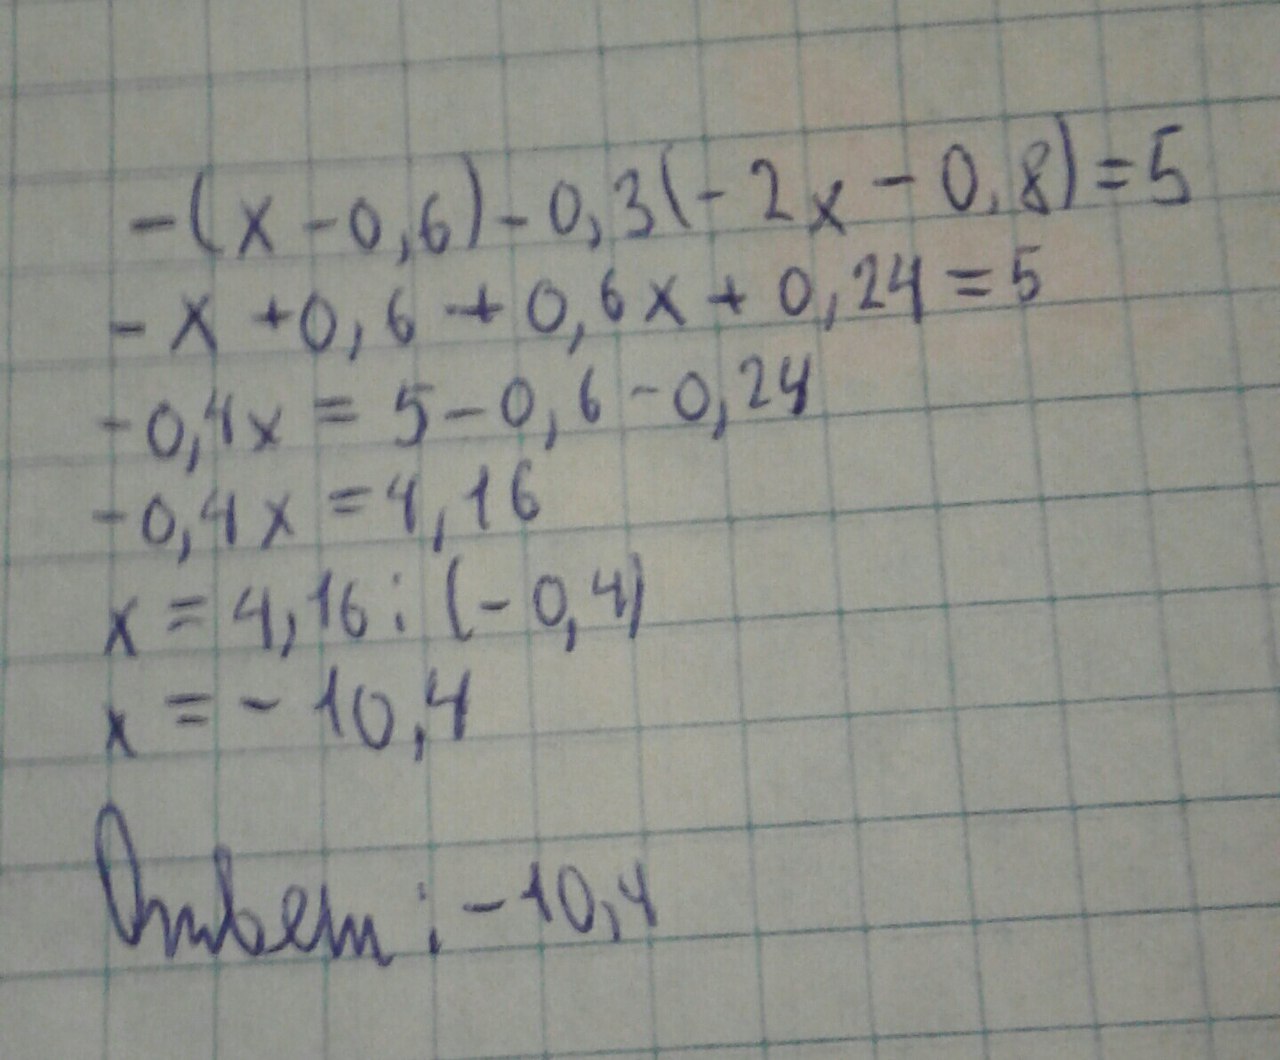 -(x-0,6)-0,3(-2x-0,8)=5
-x+0,6+0,6x+0,24=5
-0,4x=5-0,6-0,24
-0,4x=4,16
x=4,16:(-0,4)
x=-10,4
Ответ:-10,4